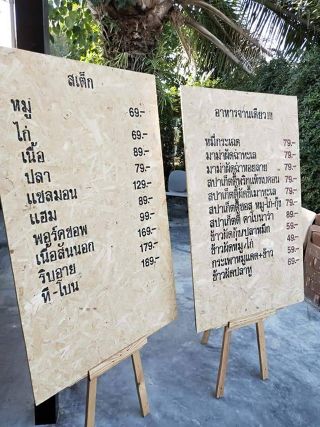 สเต็ก
หมู่ 69.-
ไก่ 69.-
เนื้อ 89.-
ปลา 79.-
แซลมอน 129.-
แฮม 89.-
พอร์คชอพ 99.-
เนื้อสันนอก 169.-
ริบอาย 179.-
ที-โบน 189.-
อาหารจานเดียว !!!
หมี่กระเฉด 79.-
มาม่าผัดฉ่าทะเล 79.-
มาม่าผัดฉ่าหอยลาย 79.-
สปาเก็ตตี้พริกแห้งเบคอน 79.-
สปาเก็ตตี้ผัดขี้เมาทะเล 79.-
สปาเก็ตตี้ซอส หมู-ไก่-กุ้ง 79.-
สปาเก็ตตี้ คาโบนาร่า 89.-
ข้าวผัดกุ้ง/ปลาหมึก 59.-
ข้าวผัดหมู/ไก่ 49.-
กระเพาหมูแดด+ข้าว 59.-
ข้าวผัดปลาทู 69.-